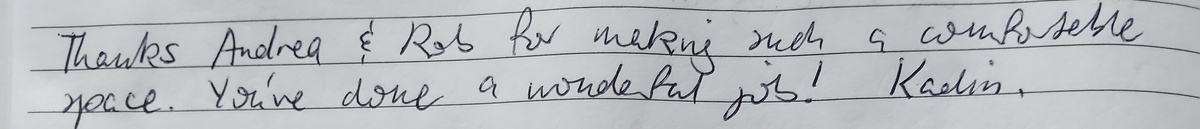 Thanks Andrea & Rob for making such a comfortable
space. You've done a wonderful job! Kaelin.